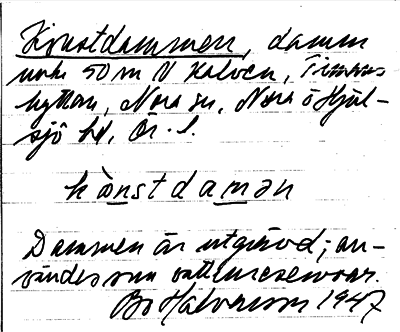 Konstdammen, damm
omkr 50 m N Kalven, Timans
hyttan, Nora sn, Nora o Hjul-
sjö hd, Ör. l.
kȯnstdamən
Dammen är utgrävd; an-
vändes som vattenreservoar.
Bo Halvarsson 1947